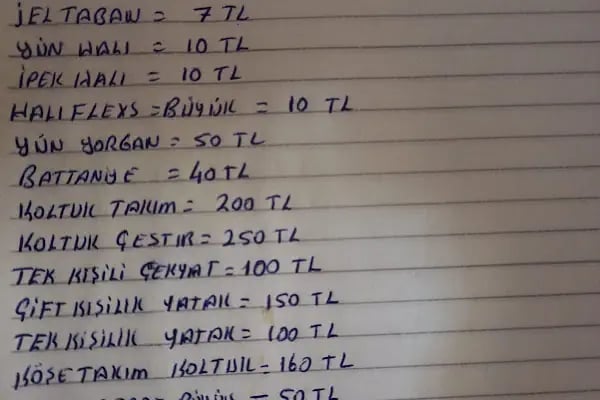 JEL TABAN = 7 TL
YÜN HALI = 10 TL
İPEK HALI = 10 TL
HALI FLEXS = BÜYÜK = 10 TL
YÜN YORGAN = 50 TL
BATTANYE = 40 TL
KOLTUK TAKIM = 200 TL
KOLTUK ÇESTIR = 250 TL
TEK KIŞILI ÇEKYAT = 100 TL
ÇİFT KIŞILIK YATAK = 150 TL
TEK KİŞİLİK YATAK = 100 TL
KÖŞE TAKIM KOLTUK = 160 TL
= 50 TL